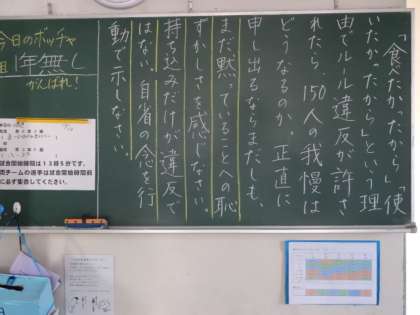 「食べたかったから」「使
いたかったから」という理
由でルール違反が許さ
れたら、150人の我慢は
どうなるのか。正直に
申し出るならまだしも、
まだ、黙っていることへの恥
ずかしさを感じなさい。
持ち込みだけが違反で
はない。自省の念を行
動で示しなさい。
今日のボッチャ
1年無し
がんばれ!
試合開始時間は13時5分です。
に必ず集合してください。